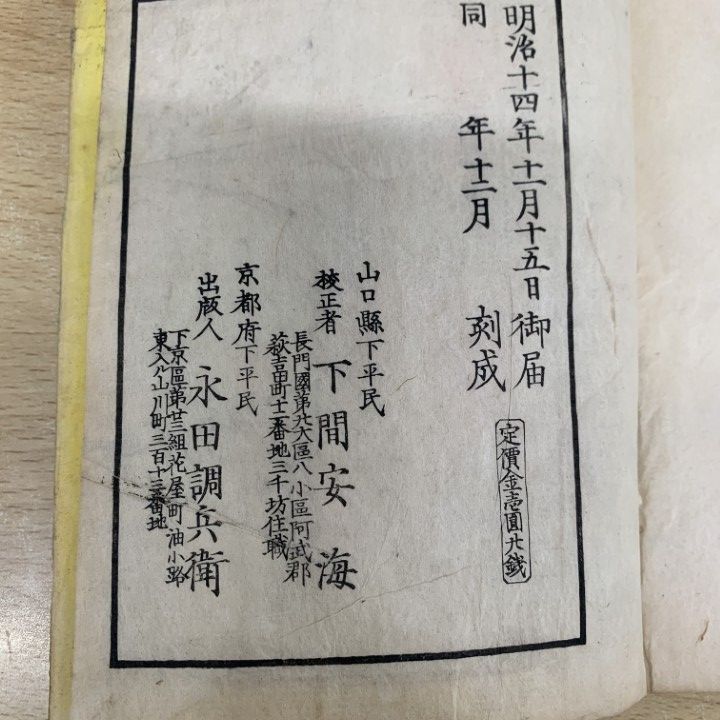 明治十四年十一月十五日御届
同年十二月刻成
定價金壱圓廿錢
山口縣下平民
校正者 下間安海
長門國第廿大區八小區阿武郡
萩吉田町十一番地三千坊住職
京都府下平民
出版人 永田調兵衛
下京區第廿三組花屋町油小路
東入ル山川町三百十三番地